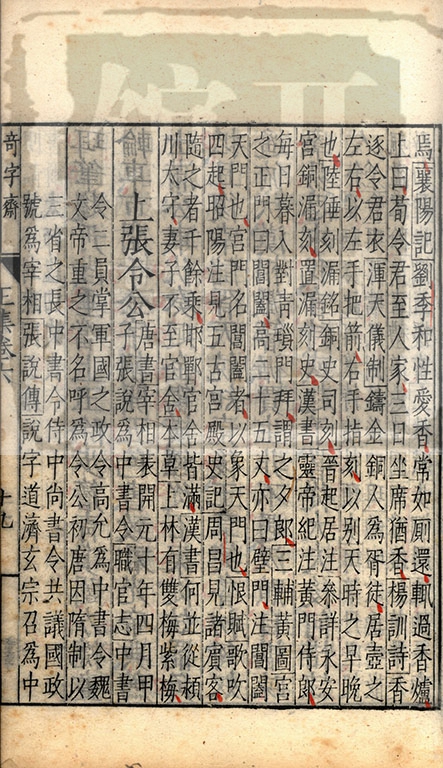 焉襄陽記劉季和性愛香常如厠還輒過香爐
上曰荀令君至人家三日坐席猶香楊訓詩香
逐令君衣渾天儀制鑄金銅人為胥徒居壺之
左右以左手把箭右手指刻以别天時之早晚
也陸倕刻漏銘銅史司刻晉起居注叅詳永安
宮銅漏刻置漏刻史漢書靈帝紀注黄門侍郎
每日暮入對青瑣門拜謂之夕郎三輔黄圖宮
之正門曰閶闔高二十五丈亦曰璧門注閶闔
天門也宮門名閶闔者以象天門也恨賦歌吹
四起昭陽注見五古宮殿史記周昌見諸賓客
隨之者千餘乘邯鄲官舍皆滿漢書何並從潁
川太守妻子不至官舍本草上林有雙梅紫梅
上張令公唐書宰相表開元十年四月甲
子張說為中書令職官志中書
令二員掌軍國之政令高允為中書令魏
文帝重之不名呼為令公初唐因隋制以
三省之長中書令侍中尚書令共議國政
號為宰相張說傳說字道濟玄宗召為中
奇字齋
五集卷六
十九